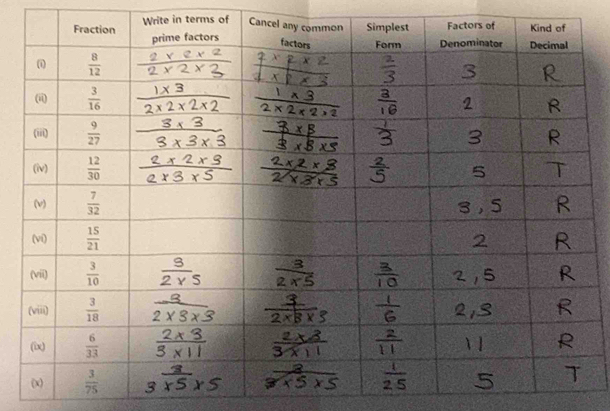 Fraction | Write in terms of prime factors | Cancel any common factors | Simplest Form | Factors of Denominator | Kind of Decimal
(i) | 8/12 | 2 × 2 × 2 / 2 × 2 × 3 | 2 × 2 × 2 / 2 × 2 × 3 | 2/3 | 3 | R
(ii) | 3/16 | 1 × 3 / 2 × 2 × 2 × 2 | 1 × 3 / 2 × 2 × 2 × 2 | 3/16 | 2 | R
(iii) | 9/27 | 3 × 3 / 3 × 3 × 3 | 3 × 3 / 3 × 3 × 3 | 1/3 | 3 | R
(iv) | 12/30 | 2 × 2 × 3 / 2 × 3 × 5 | 2 × 2 × 3 / 2 × 3 × 5 | 2/5 | 5 | T
(v) | 7/32 | 3, 5 | R
(vi) | 15/21 | 2 | R
(vii) | 3/10 | 3 / 2 × 5 | 3 / 2 × 5 | 3/10 | 2, 5 | R
(viii) | 3/18 | 3 / 2 × 3 × 3 | 3 / 2 × 3 × 3 | 1/6 | 2, 3 | R
(ix) | 6/33 | 2 × 3 / 3 × 11 | 2 × 3 / 3 × 11 | 2/11 | 11 | R
(x) | 3/75 | 3 / 3 × 5 × 5 | 3 / 3 × 5 × 5 | 1/25 | 5 | T